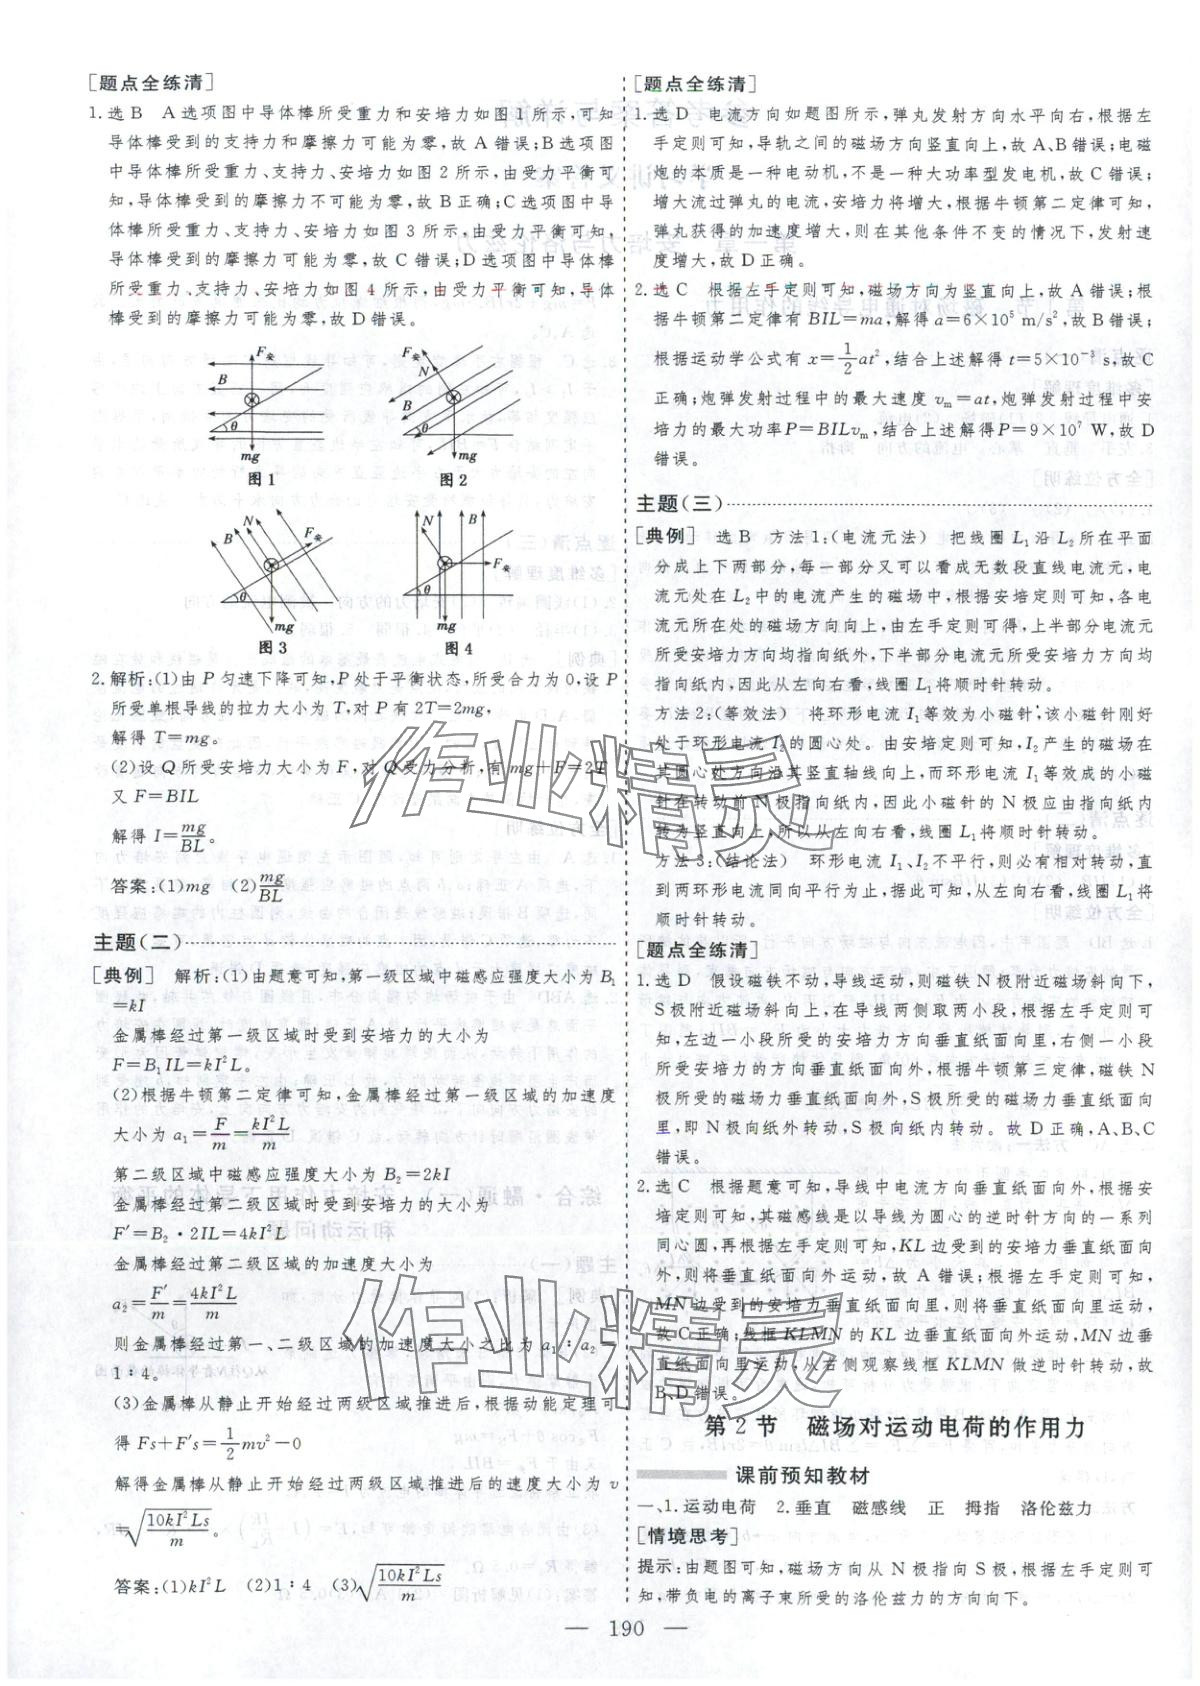 [题点全练清]
1. 选B　A选项图中导体棒所受重力和安培力如图1所示,可知
导体棒的支持力和摩擦力可能为零,故A错误;B选项图
中导体棒所受重力、支持力、安培力如图2所示,由受力平衡可
知,导体棒受到的摩擦力不可能为零,故B正确;C选项图中导
体棒所受重力、支持力、安培力如图3所示,由受力平衡可知,导
体棒受到的摩擦力可能为零,故C错误;D选项图中导体棒
所受重力、支持力、安培力如图4所示,由受力平衡可知,导体
棒受到的摩擦力可能为零,故D错误。
F安
B
θ
mg
图1
F安
N
B
θ
mg
图2
B
N
F安
θ
mg
图3
N
B
F安
θ
mg
图4
2. 解析:(1)由P匀速下降可知,P处于平衡状态,所受合力为0,设P
所受单根导线的拉力大小为T,对P有2T=2mg,
解得T=mg。
(2)设Q所受安培力大小为F,对Q受力分析,有mg+F=2T
又F=BIL
解得I=mg/BL。
答案:(1)mg　(2)mg/BL
主题(二)
[典例]　解析:(1)由题意可知,第一级区域中磁感应强度大小为B₁
=kI
金属棒经过第一级区域时受到安培力的大小为
F=B₁IL=kI²L。
(2)根据牛顿第二定律可知,金属棒经过第一级区域的加速度
大小为a₁=F/m=kI²L/m
第二级区域中磁感应强度大小为B₂=2kI
金属棒经过第二级区域时受到安培力的大小为
F′=B₂·2IL=4kI²L
金属棒经过第二级区域的加速度大小为
a₂=F′/m=4kI²L/m
则金属棒经过第一、二级区域的加速度大小之比为a₁∶a₂=
1∶4。
(3)金属棒从静止开始经过两级区域推进后,根据动能定理可
得Fs+F′s=½mv²−0
解得金属棒从静止开始经过两级区域推进后的速度大小为v
=√(10kI²Ls/m)。
答案:(1)kI²L　(2)1∶4　(3)√(10kI²Ls/m)
[题点全练清]
1. 选D　电流方向如题图所示,弹丸发射方向水平向右,根据左
手定则可知,导轨之间的磁场方向竖直向上,故A、B错误;电磁
炮的本质是一种电动机,不是一种大功率型发电机,故C错误;
增大流过弹丸的电流,安培力将增大,根据牛顿第二定律可知,
弹丸获得的加速度增大,则在其他条件不变的情况下,发射速
度增大,故D正确。
2. 选C　根据左手定则可知,磁场方向为竖直向上,故A错误;根
据牛顿第二定律有BIL=ma,解得a=6×10⁵ m/s²,故B错误;
根据运动学公式有x=½at²,结合上述解得t=5×10⁻³ s,故C
正确;炮弹发射过程中的最大速度vm=at,炮弹发射过程中安
培力的最大功率P=BILvm,结合上述解得P=9×10⁷ W,故D
错误。
主题(三)
[典例]　选B　方法1:(电流元法)　把线圈L₁沿L₂所在平面
分成上下两部分,每一部分又可以看成无数段直线电流元,电
流元处在L₂中的电流产生的磁场中,根据安培定则可知,各电
流元所在处的磁场方向向上,由左手定则可得,上半部分电流元
所受安培力方向均指向纸外,下半部分电流元所受安培力方向均
指向纸内,因此从左向右看,线圈L₁将顺时针转动。
方法2:(等效法)　将环形电流I₁等效为小磁针,该小磁针刚好
处于环形电流I₂的圆心处。由安培定则可知,I₂产生的磁场在
其圆心处方向沿其竖直轴线向上,而环形电流I₁等效成的小磁
针在转动前N极指向纸内,因此小磁针的N极应由指向纸内
转为竖直向上,所以从左向右看,线圈L₁将顺时针转动。
方法3:(结论法)　环形电流I₁、I₂不平行,则必有相对转动,直
到两环形电流同向平行为止,据此可知,从左向右看,线圈L₁将
顺时针转动。
[题点全练清]
1. 选D　假设磁铁不动,导线运动,则磁铁N极附近磁场斜向下,
S极附近磁场斜向上,在导线两侧取两小段,根据左手定则可
知,左边一小段所受的安培力方向垂直纸面向里,右侧一小段
所受安培力的方向垂直纸面向外,根据牛顿第三定律,磁铁N
极所受的磁场力垂直纸面向外,S极所受的磁场力垂直纸面向
里,即N极向纸外转动,S极向纸内转动。故D正确,A、B、C
错误。
2. 选C　根据题意可知,导线中电流方向垂直纸面向外,根据安
培定则可知,其磁感线是以导线为圆心的逆时针方向的一系列
同心圆,再根据左手定则可知,KL边受到的安培力垂直纸面向
外,则将垂直纸面向外运动,故A错误;根据左手定则可知,
MN边受到的安培力垂直纸面向里,则将垂直纸面向里运动,
故C正确;线框KLMN的KL边垂直纸面向外运动,MN边垂
直纸面向里运动,从右侧观察线框KLMN做逆时针转动,故
B、D错误。
第2节　磁场对运动电荷的作用力
课前预知教材
一、1.运动电荷　2.垂直　磁感线　正　拇指　洛伦兹力
[情境思考]
提示:由题图可知,磁场方向从N极指向S极,根据左手定则可
知,带负电的离子束所受的洛伦兹力的方向向下。
— 190 —
作业精灵
作业精灵